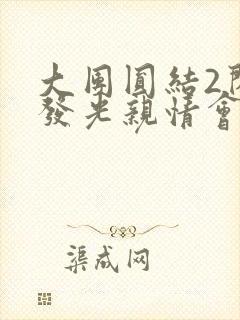 大団圓結2閃
發光親情會
渠成网